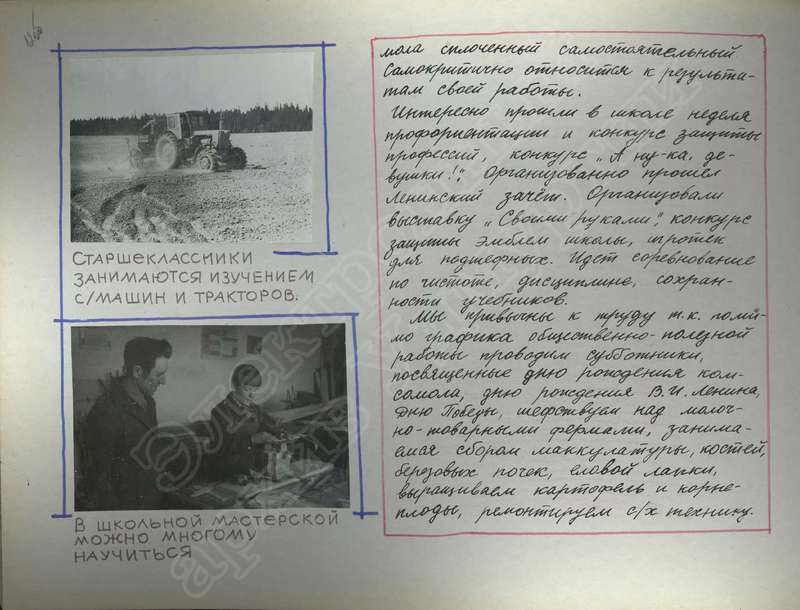 СТАРШЕКЛАССНИКИ
ЗАНИМАЮТСЯ ИЗУЧЕНИЕМ
С/МАШИН И ТРАКТОРОВ.
В ШКОЛЬНОЙ МАСТЕРСКОЙ
МОЖНО МНОГОМУ
НАУЧИТЬСЯ
мола сплоченный самостоятельный
Самокритично относится к результа-
там своей работы.
Интересно прошли в школе неделя
профориентации и конкурс защиты
профессий, конкурс „А ну-ка, де-
вушки!", Организованно прошел
Ленинский зачёт. Организовали
выставку „Своими руками", конкурс
защиты эмблем школы, игротек
для подшефных. Идет соревнование
по чистоте, дисциплине, сохран-
ности учебников.
Мы привычны к труду т.к. поми-
мо графика общественно-полезной
работы проводим субботники,
посвященные дню рождения ком-
сомола, дню рождения В.И. Ленина,
Дню Победы, шефствуем над молоч-
но-товарными фермами, занима-
емся сбором маккулатуры, костей,
березовых почек, еловой лапки,
выращиваем картофель и корне-
плоды, ремонтируем с/х технику.